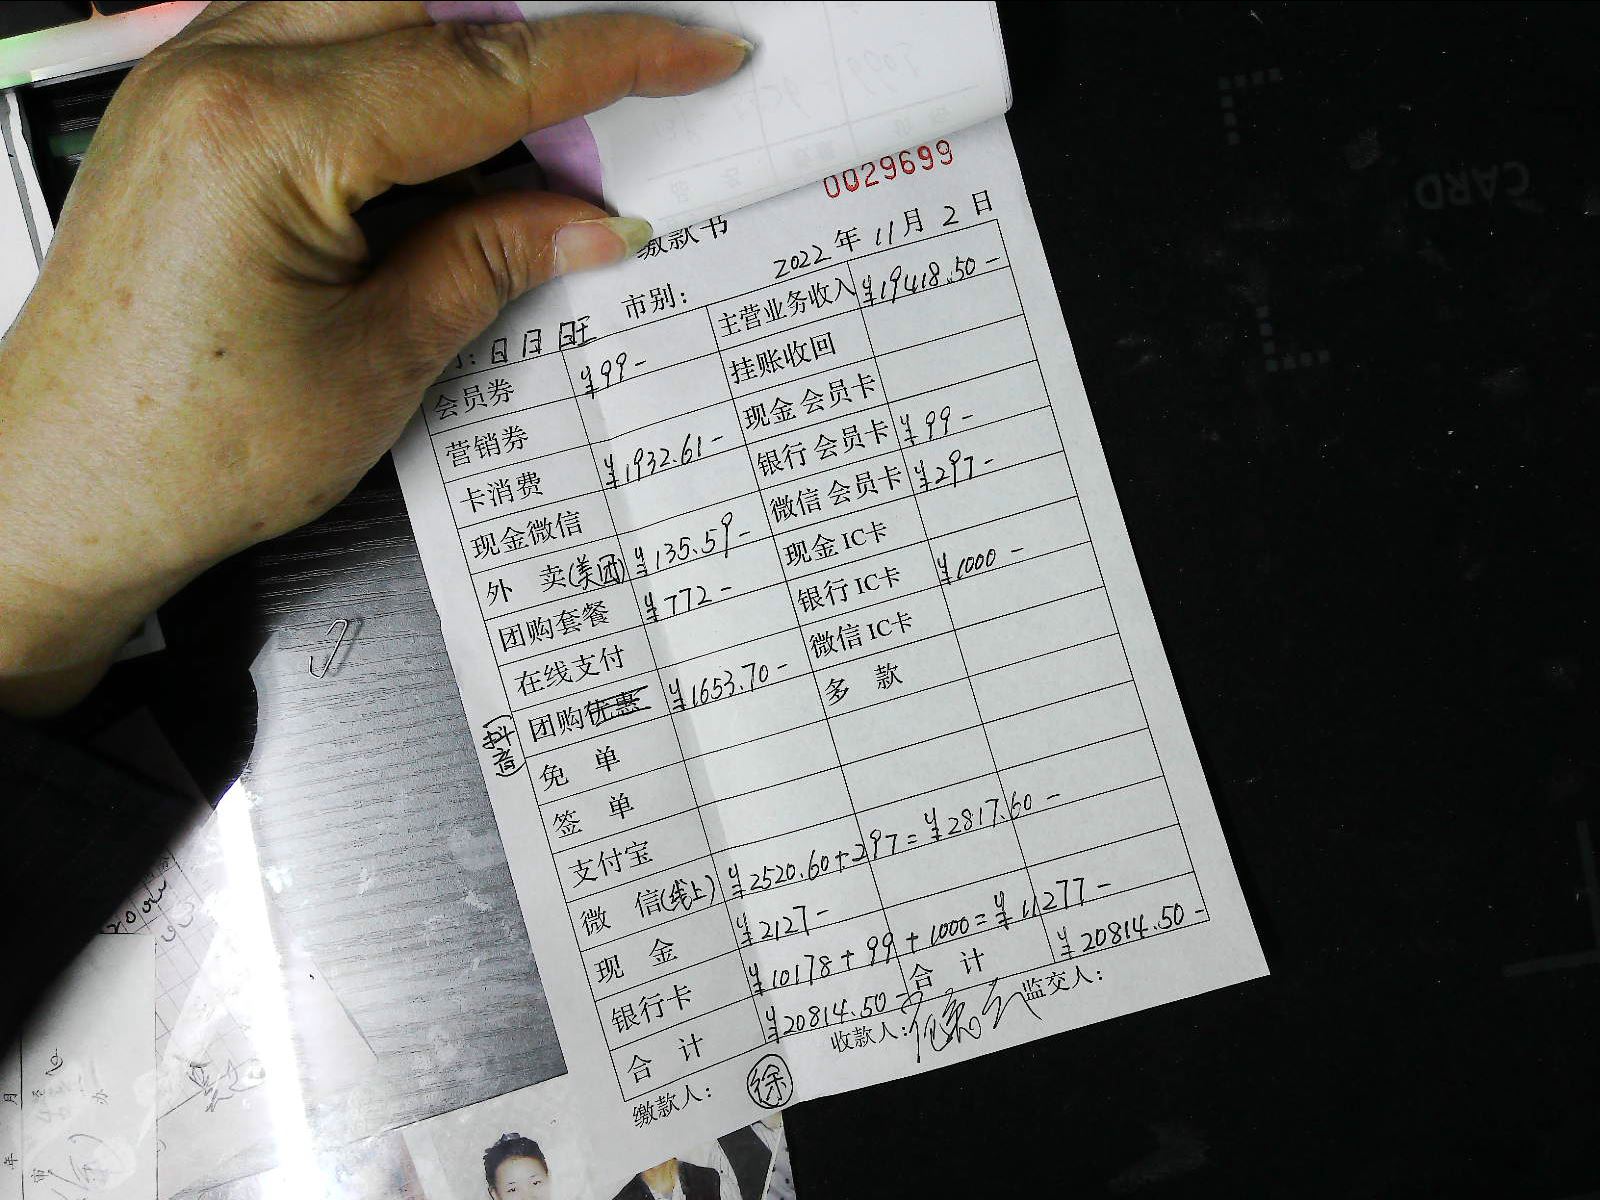 0029699
缴款书
2022 年 11 月 2 日
市别：
日日旺
会员券 ¥99- 主营业务收入 ¥19418.50-
营销券 挂账收回
卡消费 ¥1932.61- 现金会员卡
现金微信 银行会员卡 ¥99-
外 卖(美团) ¥135.59- 微信会员卡 ¥297-
团购套餐 ¥772- 现金IC卡
在线支付 银行IC卡 ¥1000-
团购优惠 (抖音) ¥1653.70- 微信IC卡
免 单 多 款
签 单
支付宝
微 信(线上) ¥2520.60+297=¥2817.60-
现 金 ¥2127-
银行卡 ¥10178+99+1000=¥11277-
合 计 ¥20814.50- 合 计 ¥20814.50-
缴款人： 徐 收款人： 监交人：
CARD